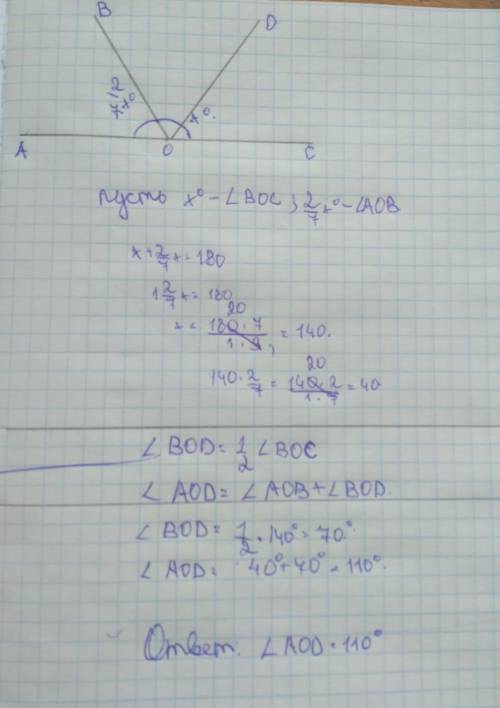 B
D
2/7 x°
x°.
A
O
C
пусть x° - ∠BOC ; 2/7 x° - ∠AOB
x + 2/7 x = 180
1 2/7 x = 180
20
x = 180 · 7 / 1 · 9, = 140.
20
140 · 2/7 = 140 · 2 / 1 · 7 = 40
∠ BOD = 1/2 ∠BOC
∠ AOD = ∠ AOB + ∠ BOD.
∠ BOD = 1/2 · 140° = 70°.
∠ AOD = 40° + 70° = 110°.
Ответ: ∠ AOD = 110°